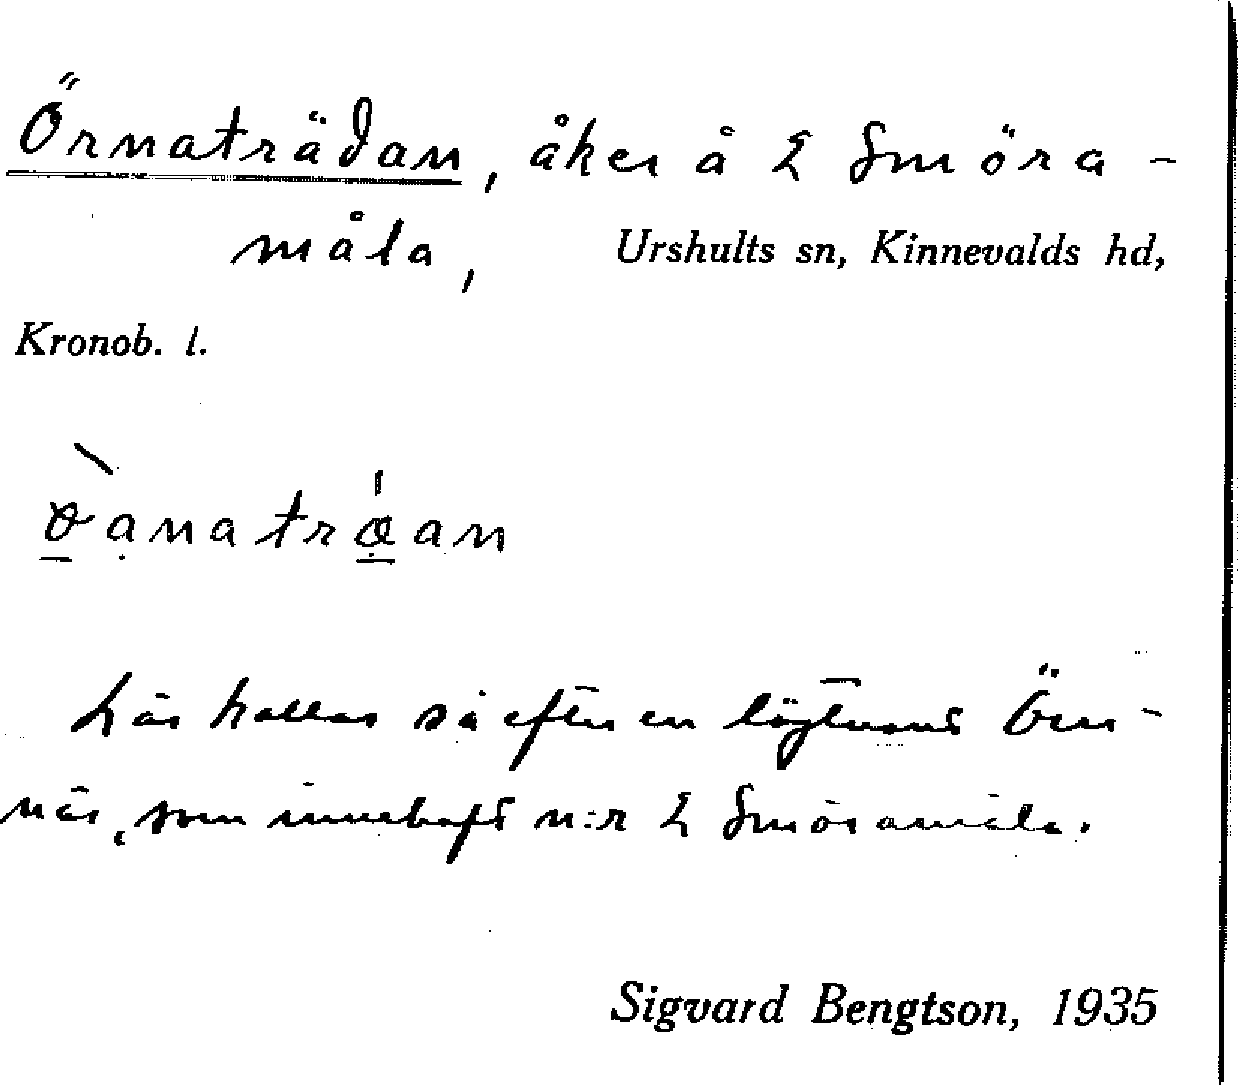 Örnaträdan, åker å 2 Smöra-
måla, Urshults sn, Kinnevalds hd,
Kronob. l.
Lär kallas så efter en löjtnant Örn-
när, som innehaft n:r 2 Smöramåla.
Sigvard Bengtson, 1935